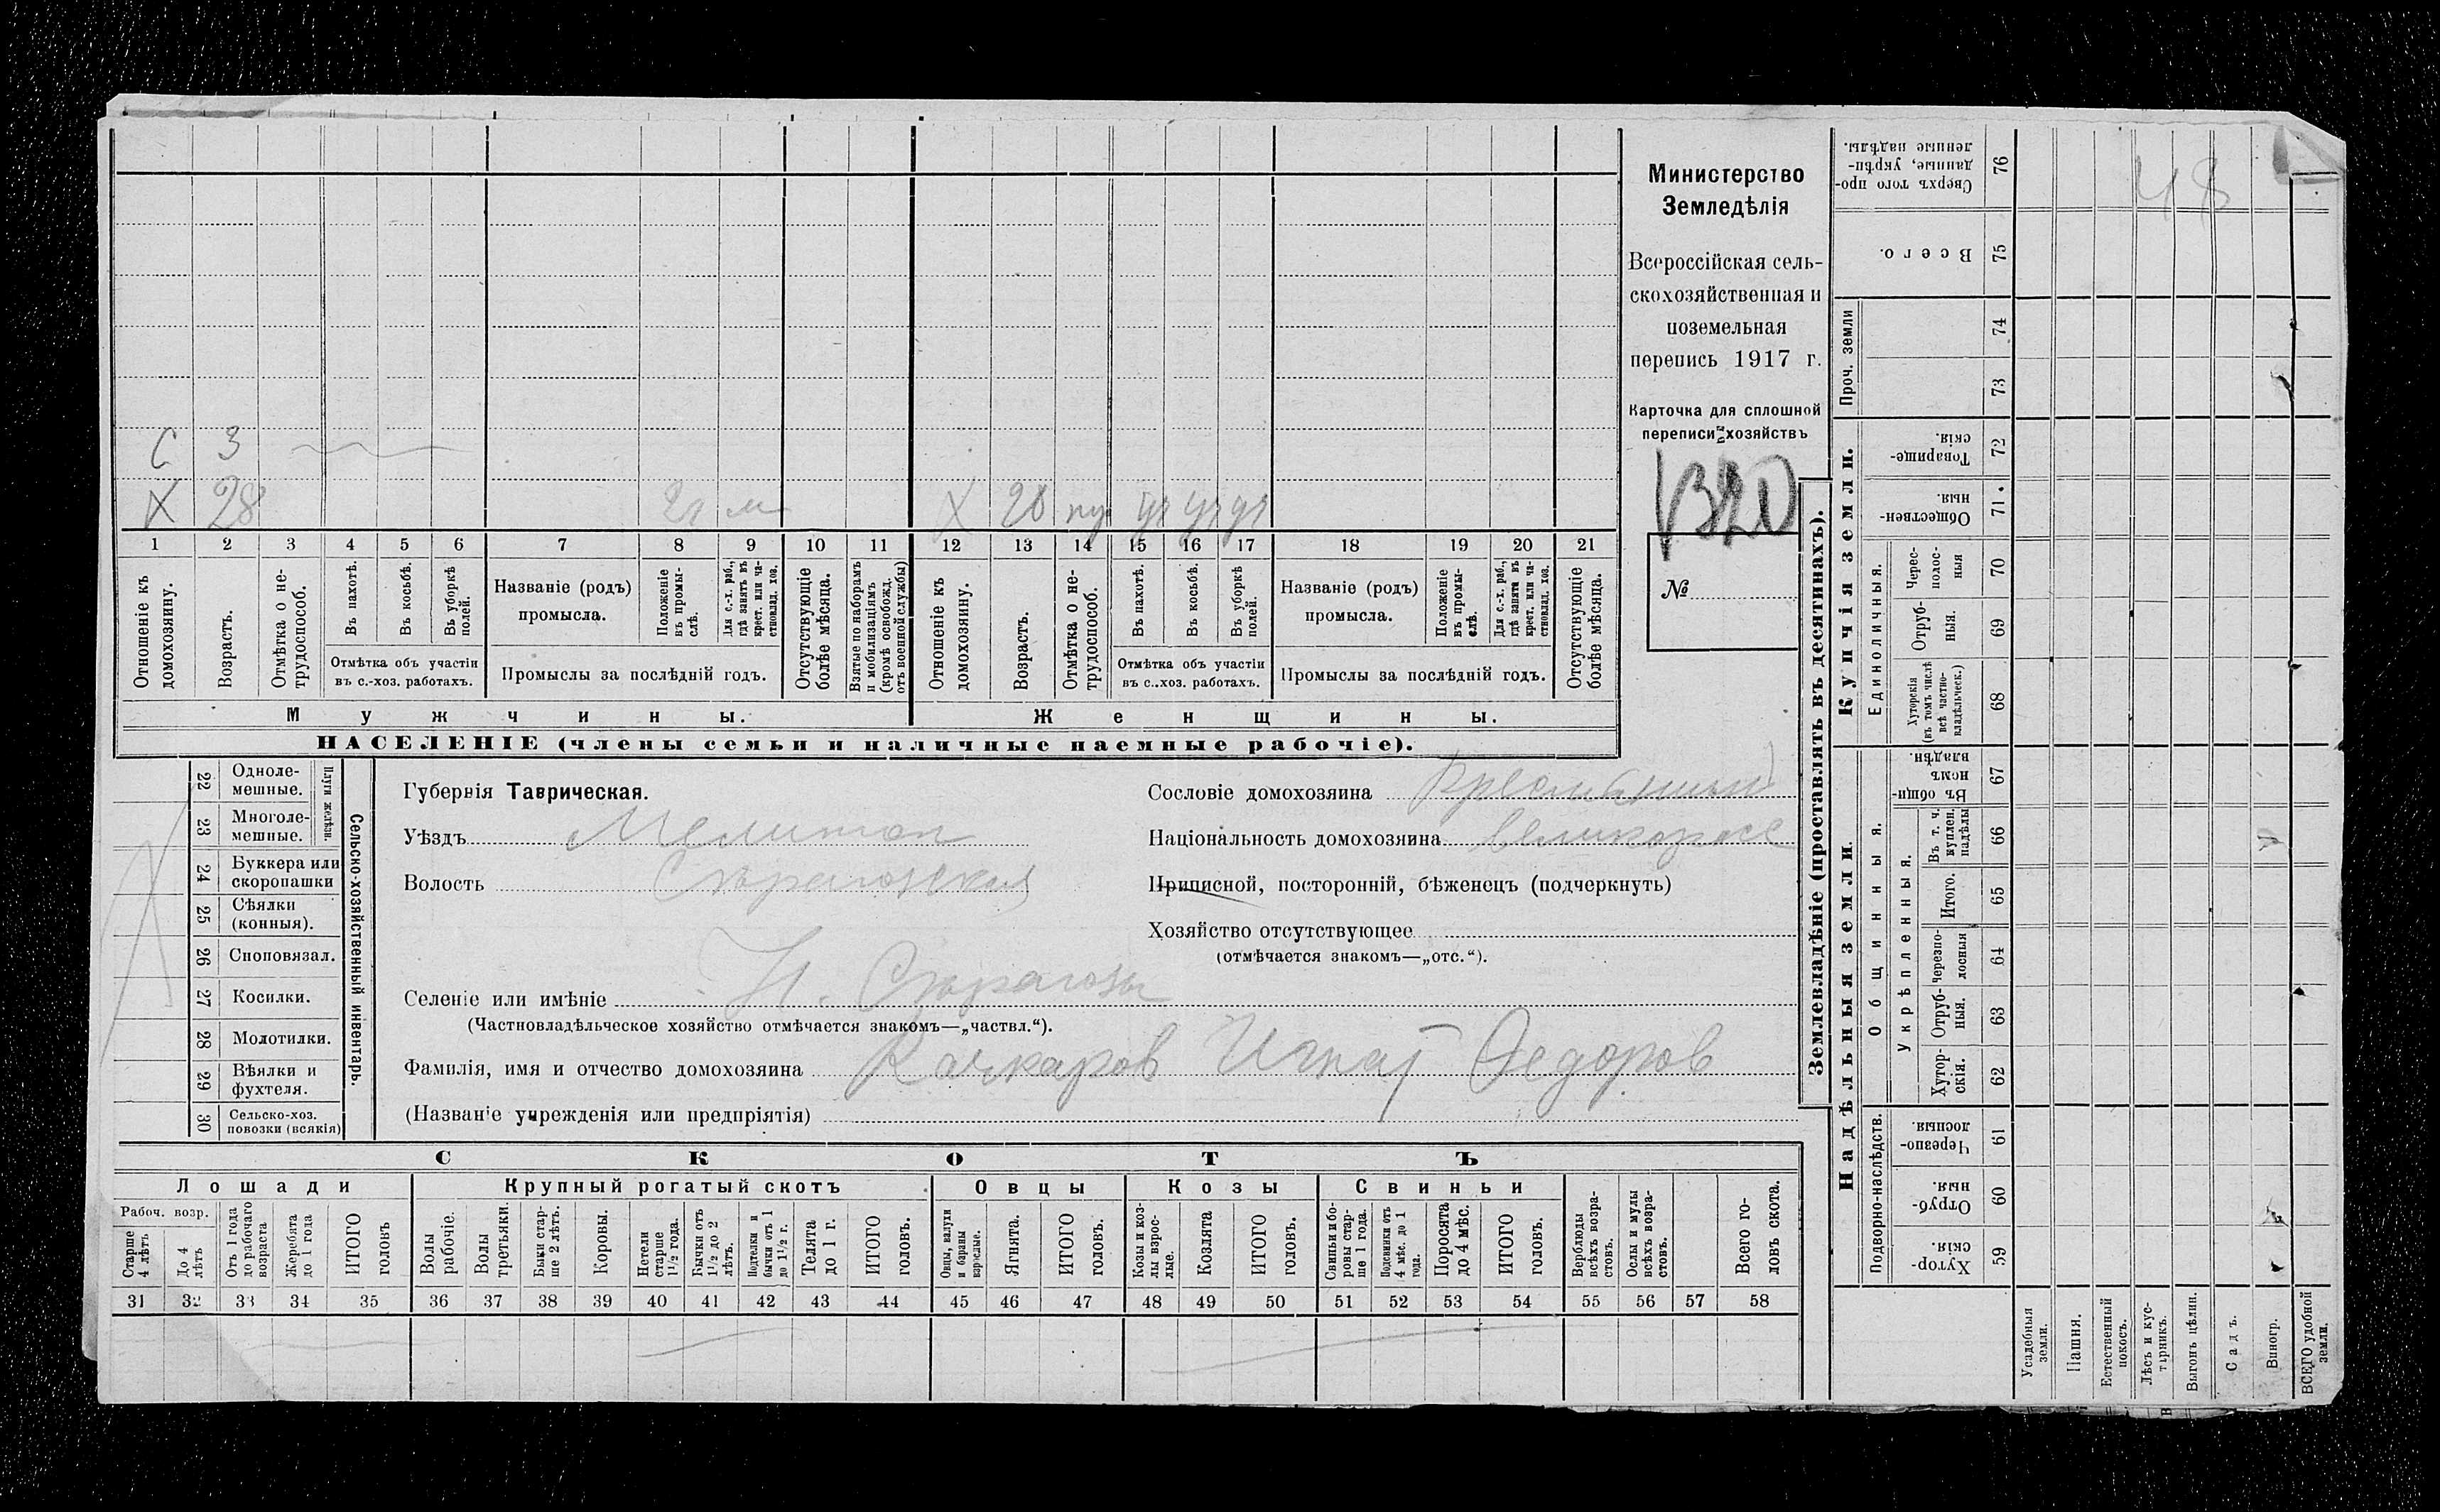 Министерство
Земледѣлія
Всероссійская сель-
скохозяйственная и
поземельная
перепись 1917 г.
Карточка для сплошной
переписи хозяйствъ
№
С 3
Х 28
Х 20
1 2 3 4 5 6 7 8 9 10 11 12 13 14 15 16 17 18 19 20 21
Отношеніе къ домохозяину.
Возрастъ.
Отмѣтка о не-трудоспособ.
Въ пахотѣ.
Въ косьбѣ.
Въ уборкѣ полей.
Отмѣтка объ участіи
въ с.-хоз. работахъ.
Названіе (родъ)
промысла.
Положеніе въ промы-слѣ.
Для с.-х. раб., гдѣ занятъ въ крест. или ча-стновлад. хоз.
Промыслы за послѣдній годъ.
Отсутствующіе болѣе мѣсяца.
Взятые по наборамъ и мобилизаціямъ (кромѣ освобожд. отъ военной службы)
Отношеніе къ домохозяину.
Возрастъ.
Отмѣтка о не-трудоспособ.
Въ пахотѣ.
Въ косьбѣ.
Въ уборкѣ полей.
Отмѣтка объ участіи
въ с.-хоз. работахъ.
Названіе (родъ)
промысла.
Положеніе въ промы-слѣ.
Для с.-х. раб., гдѣ занята въ крест. или ча-стновлад. хоз.
Промыслы за послѣдній годъ.
Отсутствующіе болѣе мѣсяца.
Мужчины.
Женщины.
НАСЕЛЕНІЕ (члены семьи и наличные наемные рабочіе).
22 Одноле-мешные.
23 Многоле-мешные.
Плуги желѣзн.
24 Буккера или скоропашки
25 Сѣялки (конныя).
26 Сноповязал.
27 Косилки.
28 Молотилки.
29 Вѣялки и фухтеля.
30 Сельско-хоз. повозки (всякія)
Сельско-хозяйственный инвентарь.
Губернія Таврическая.
Уѣздъ Мелитоп
Волость
Селеніе или имѣніе
(Частновладѣльческое хозяйство отмѣчается знакомъ—„частвл.“).
Фамилія, имя и отчество домохозяина Качкаров Игнат Федоров
(Названіе учрежденія или предпріятія)
Сословіе домохозяина Крестьянин
Національность домохозяина великоросс
Приписной, посторонній, бѣженецъ (подчеркнуть)
Хозяйство отсутствующее
(отмѣчается знакомъ—„отс.“).
СКОТЪ
Лошади
Крупный рогатый скотъ
Овцы
Козы
Свиньи
Рабоч. возр.
Старше 4 лѣтъ
До 4 лѣтъ
Отъ 1 года до рабочаго возраста
Жеребята до 1 года
ИТОГО головъ
Волы рабочіе.
Волы третьяки.
Быки стар-ше 2 лѣтъ.
Коровы.
Нетели старше 1½ года.
Бычки отъ 1½ до 2 лѣтъ.
Подтелки и бычки отъ 1 до 1½ г.
Телята до 1 г.
ИТОГО головъ.
Овцы, валухи и бараны взрослые.
Ягнята.
ИТОГО головъ.
Козы и коз-лы взрос-лые.
Козлята
ИТОГО головъ.
Свиньи и бо-ровы стар-ше 1 года.
Подсвинки отъ 4 мѣс. до 1 года.
Поросята до 4 мѣс.
ИТОГО головъ.
Верблюды всѣхъ возра-стовъ.
Ослы и мулы всѣхъ возра-стовъ.
Всего го-ловъ скота.
31 32 33 34 35 36 37 38 39 40 41 42 43 44 45 46 47 48 49 50 51 52 53 54 55 56 57 58
Землевладѣніе (проставлять въ десятинахъ).
Купчія земли.
Надѣльныя земли.
Сверхъ того про-данные, укрѣп-ленные надѣлы. 76
Всего. 75
Проч. земли 74
73
Товарище-скія. 72
Обществен-ныя. 71
Единоличныя.
Черес-полос-ныя 70
Отруб-ныя. 69
Хуторскія (въ томъ числѣ всѣ частно-владѣльческ.) 68
Общинныя.
Въ общин-номъ владѣн. 67
Укрѣпленныя.
Въ т. ч. куплен. надѣлы 66
Итого. 65
Черезпо-лосныя 64
Отруб-ныя. 63
Хутор-скія. 62
Подворно-наслѣдств.
Черезпо-лосныя. 61
Отруб-ныя. 60
Хутор-скія. 59
Усадебныя земли.
Пашня.
Естественный покосъ.
Лѣсъ и кус-тарникъ.
Выгонъ цѣлин.
Садъ.
Виногр.
ВСЕГО удобной земли.
48